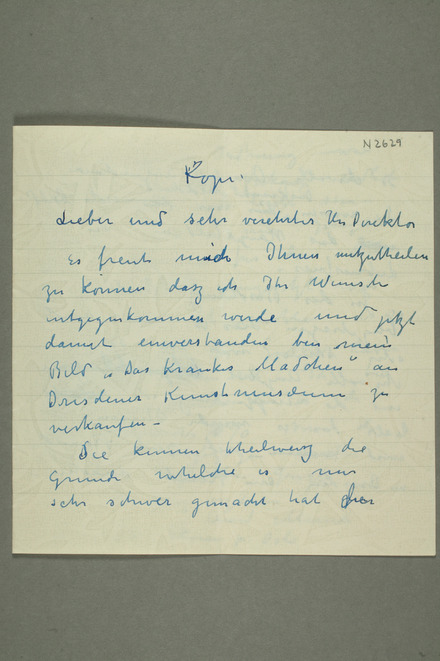 N 2629
Kopi.
Lieber und sehr verehrter Hr Direktor
Es freut mich Ihnen mitzutheilen
zu können dasz ich Ihr Wunsch
entgegenkommen werde und jetzt
damit einverstanden bin mein
Bild „Das Kranke Mädchen" an
Dresdener Kunstmuseum zu
verkaufen –
Die kennen theilweise die
Grunde welche is mir
sehr schwer gemacht hat